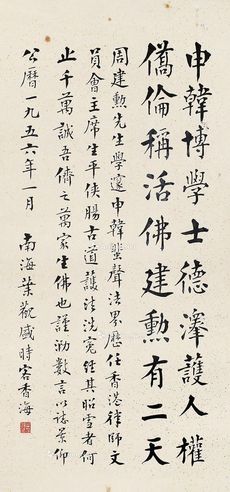 申韓博學士德澤護人權
僑倫稱活佛建勲有二天
周建勲先生學邃申韓蜚聲法界歷任香港律師文
員會主席生平俠腸古道護法洗冤經其昭雪者何
止千萬誠吾儕之萬家生佛也謹泐數言以誌景仰
公曆一九五六年一月　南海葉觀盛時客香海